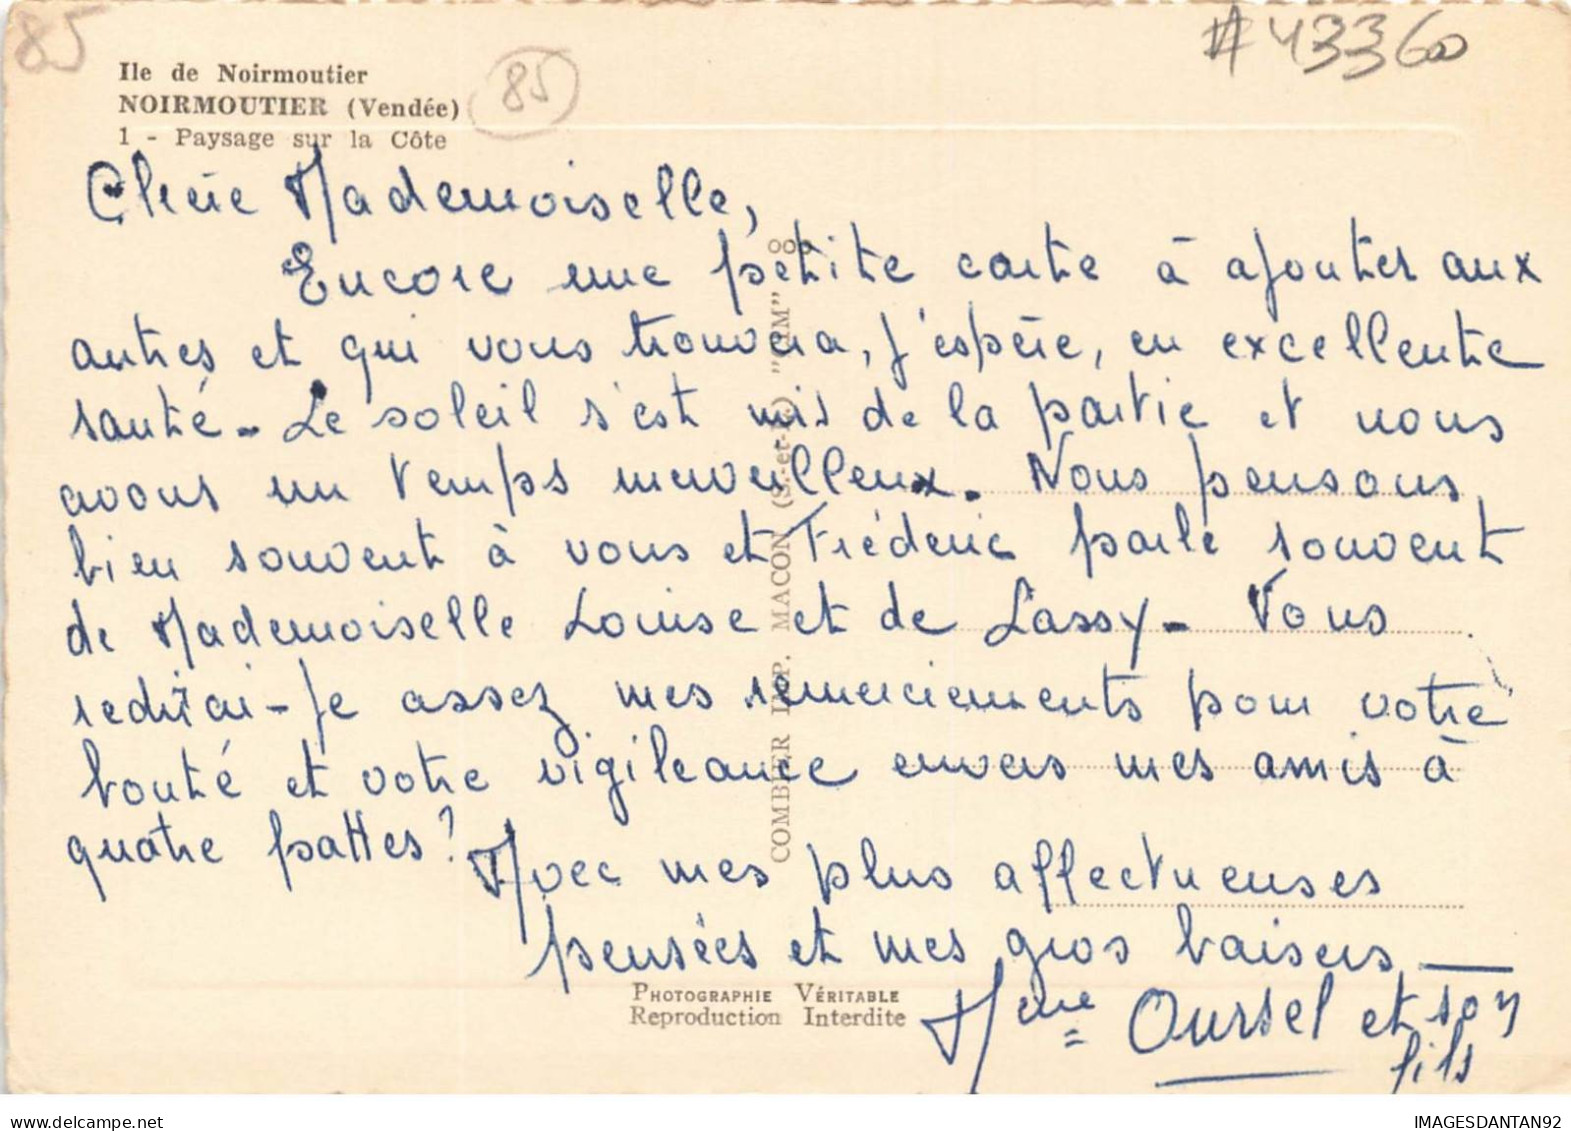 85
# 43360
Ile de Noirmoutier
NOIRMOUTIER (Vendée)
85
1 - Paysage sur la Côte
Chère Mademoiselle,
Encore une petite carte à ajouter aux
autres et qui vous trouvera, j'espère, en excellente
santé. Le soleil s'est mis de la partie et nous
avons un temps merveilleux. Nous pensons
bien souvent à vous et Frédéric parle souvent
de Mademoiselle Louise et de Lassy. Vous
redirai-je assez mes remerciements pour votre
bonté et votre vigileance envers mes amis à
quatre pattes?
Avec mes plus affectueuses
pensées et mes gros baisers —
Mme Oursel et son
fils
COMBIER IMP. MACON (S.-et-L.) "CIM"
PHOTOGRAPHIE VÉRITABLE
Reproduction Interdite
IMAGESDANTAN92